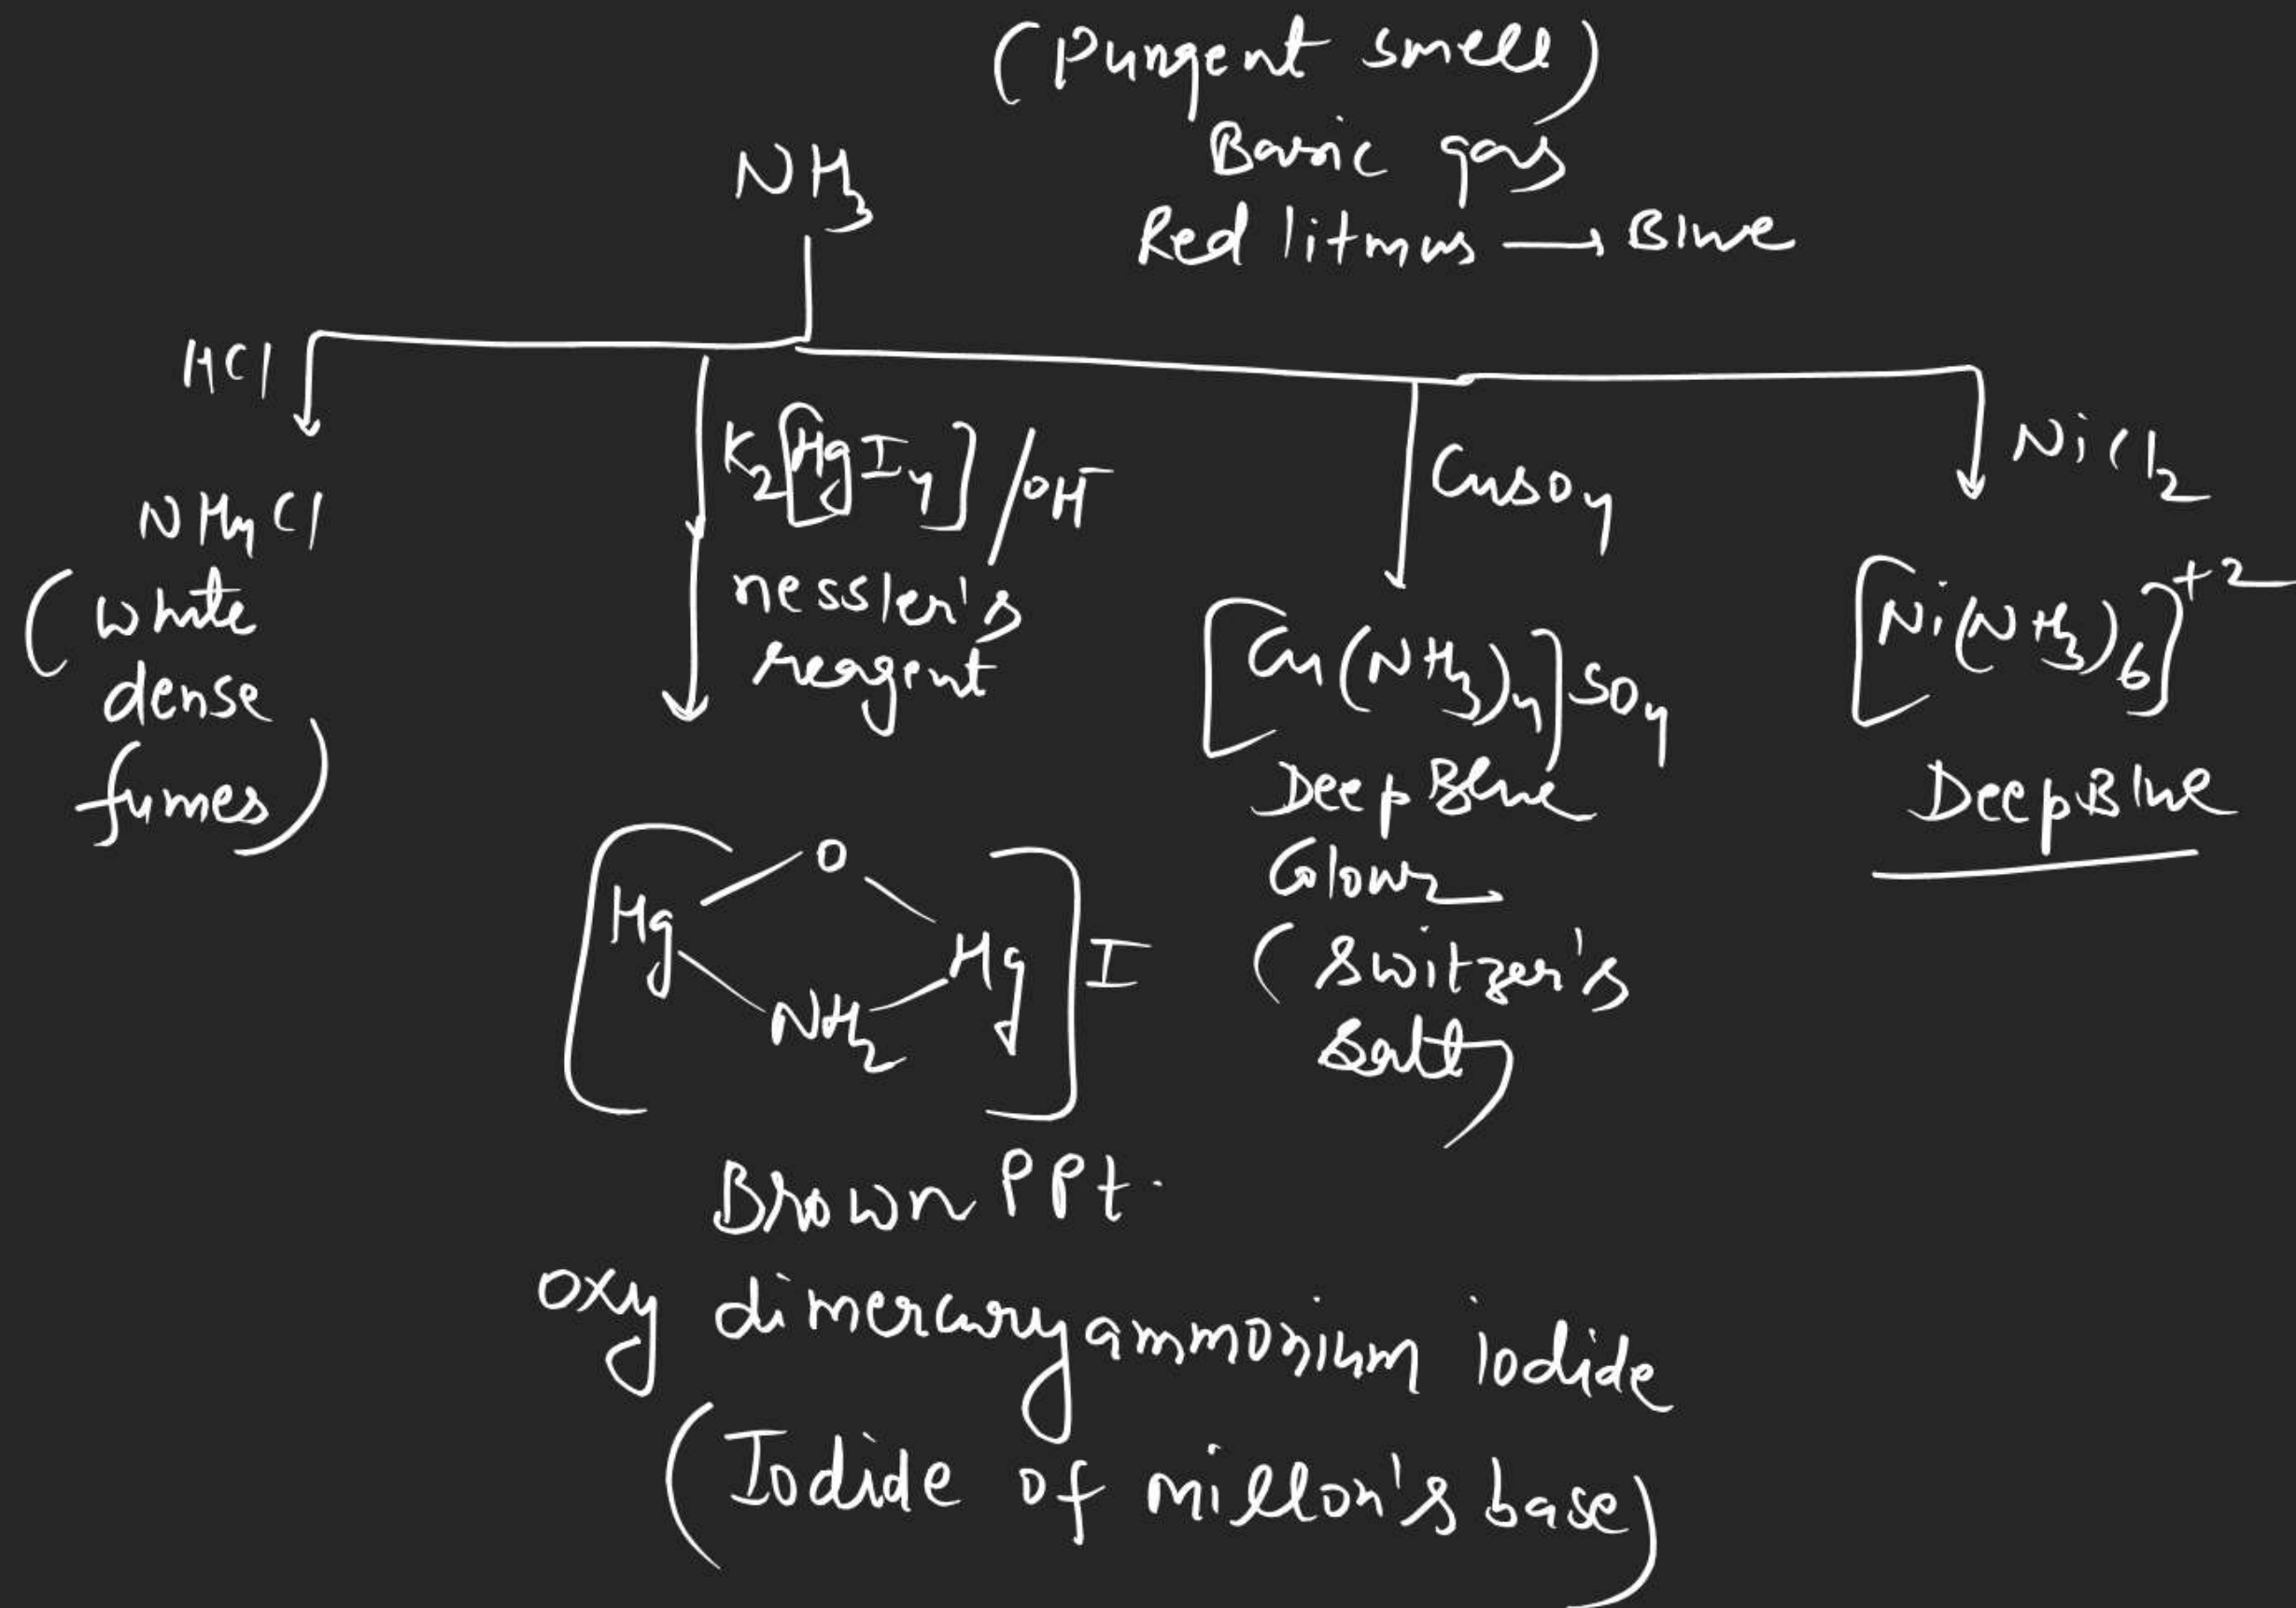 (Pungent smell)
Basic gas
Red litmus → Blue
NH3
HCl
NH4Cl
(white
dense
fumes)
K2[HgI4]/OH⁻
nessler's
reagent
[Hg O Hg NH2]I
Brown PPt.
oxy dimercuryammonium iodide
(Iodide of millon's base)
CuSO4
[Cu(NH3)4]SO4
Deep Blue
Colour
(Switzer's
Salt)
NiCl2
[Ni(NH3)6]+2
Deep Blue